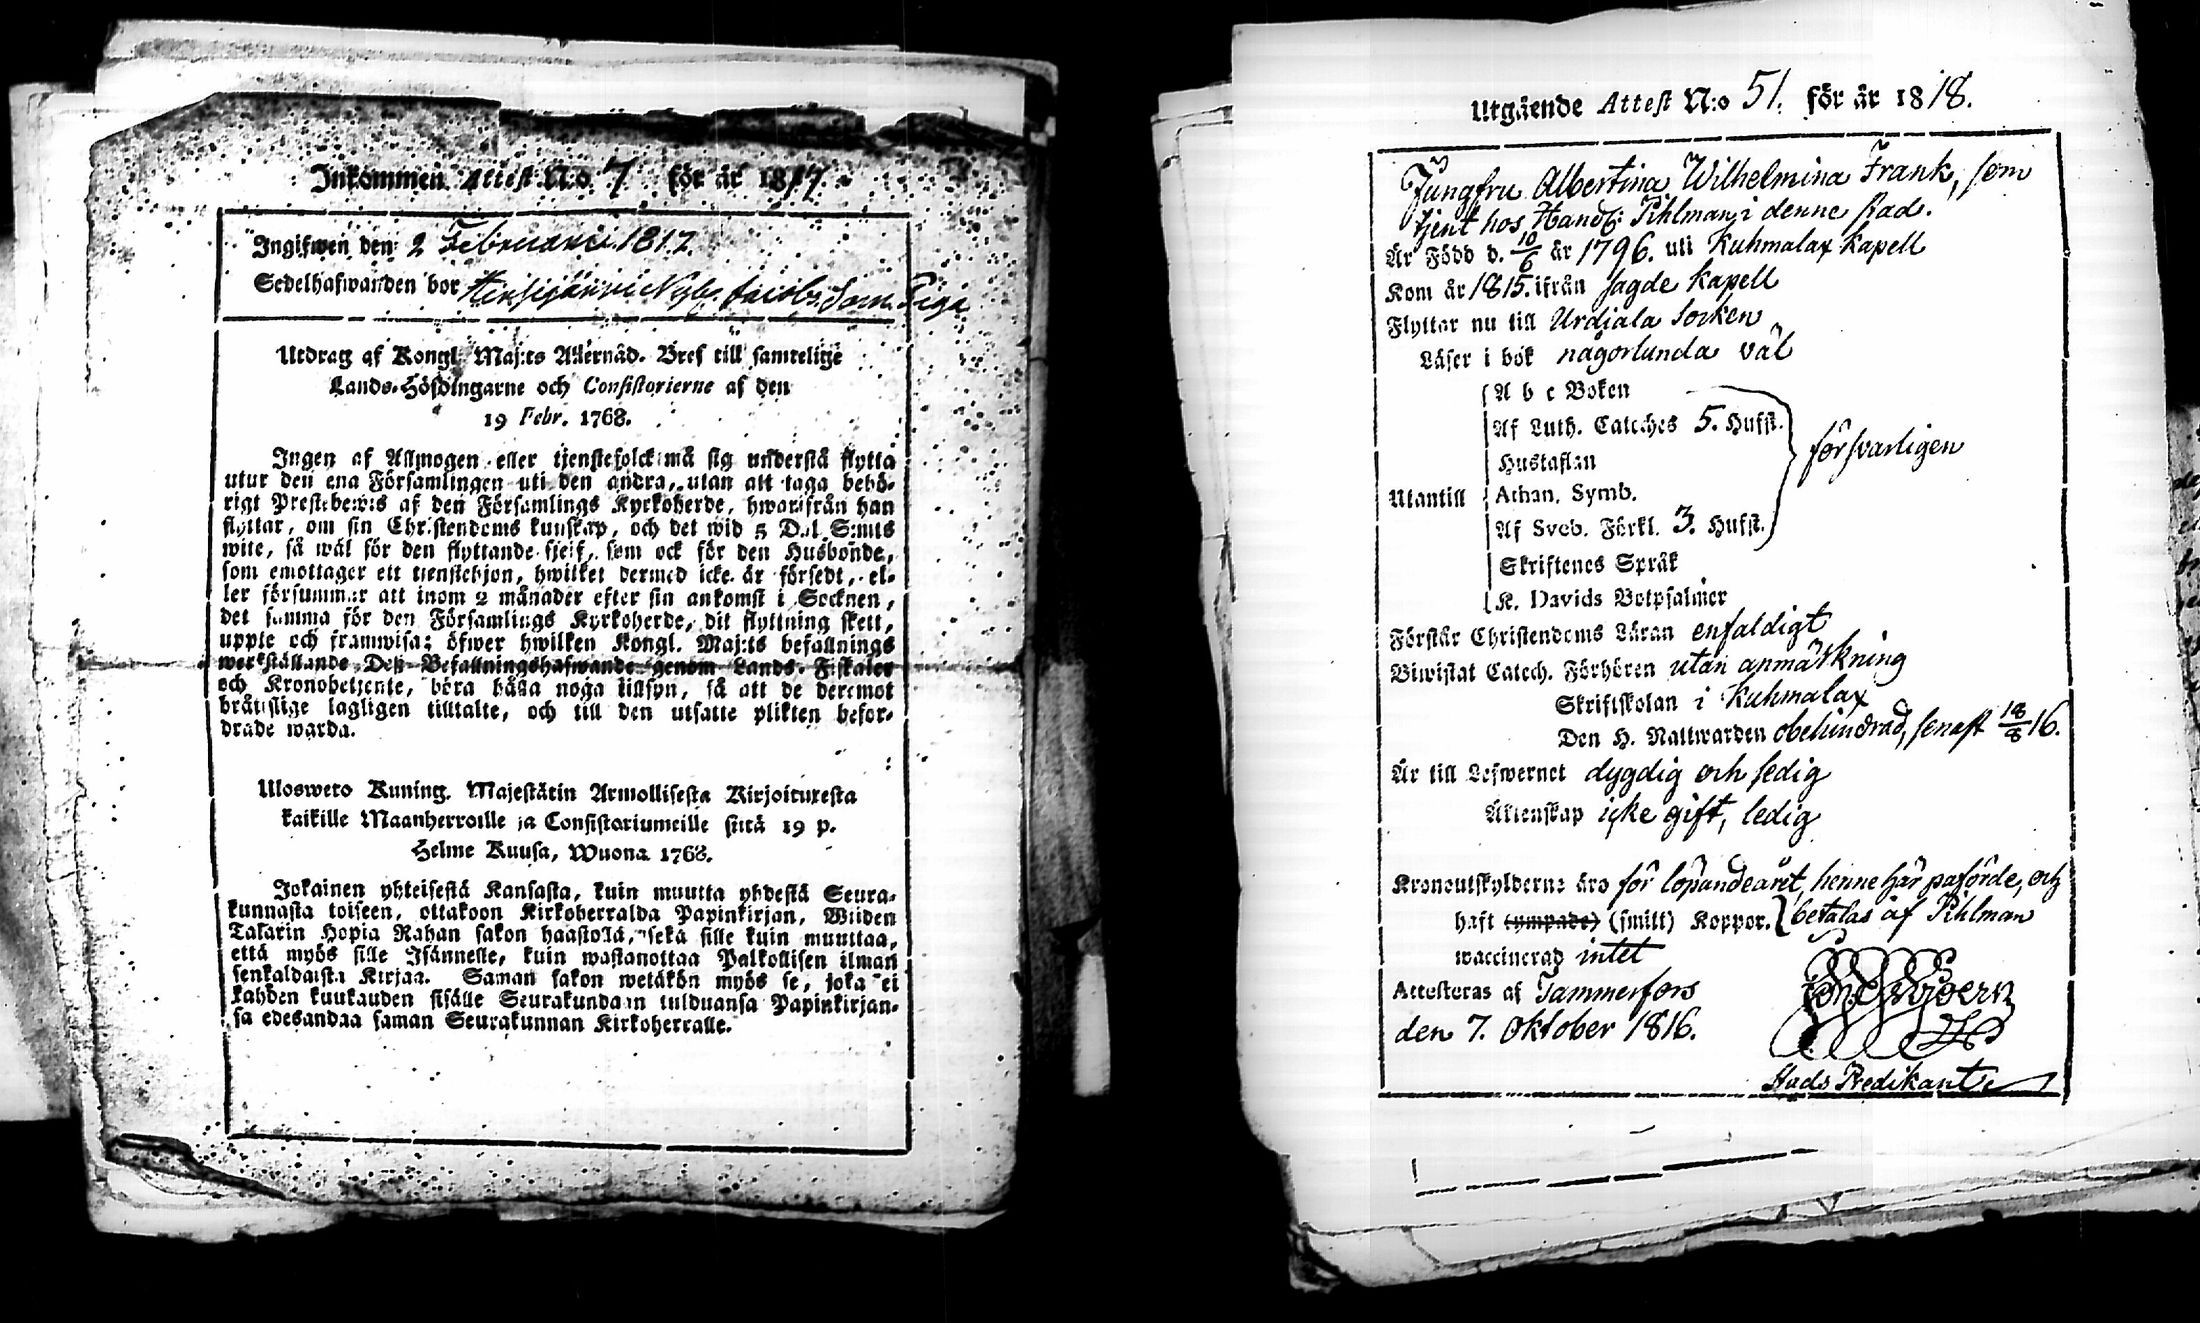 Inkommen Attest N:o 7 för år 1817.
Ingifwen den 2 Februari 1817.
Sedelhafwanden bor Nyby Jacobs, som Piga
Utdrag af Kongl. Maj:ts Allernåd. Bref till samtelige
Lands-Höfdingarne och Consistorierne af den
19 Febr. 1768.
Ingen af Allmogen eller tjenstefolck må sig understå flytta
utur den ena Församlingen uti den andra, utan att taga behö-
rigt Prestebewis af den Församlings Kyrkoherde, hwarifrån han
flyttar, om sin Christendoms kunskap, och det wid 5 Dal. S:mts
wite, så wäl för den flyttande sjelf, som ock för den Husbonde,
som emottager ett tjenstehjon, hwilket dermed icke är försedt, el-
ler försummar att inom 2 månader efter sin ankomst i Socknen,
det samma för den Församlings Kyrkoherde, dit flyttning skett,
uppte och framwisa; öfwer hwilken Kongl. Maj:ts befallnings
werkställande Dess Befallningshafwande genom Lands-Fiskaler
och Kronobetjente, böra hålla noga tillsyn, så att de deremot
bråttslige lagligen tilltalte, och till den utsatte plikten befor-
drade warda.
Uloswеto Kuning. Majestätin Armollisesta Kirjoituxesta
kaikille Maanherroille ja Consistoriumeille siitä 19 p.
Helme Kuusa, Wuona 1768.
Jokainen yhteisestä Kansasta, kuin muutta yhdestä Seura-
kunnasta toiseen, ottakoon Kirkoherralda Papinkirjan, Wiiden
Talarin Hopia Rahan sakon haastolla, sekä sille kuin muuttaa,
että myös sille Isännelle, kuin wastanottaa Palkollisen ilman
senkaldaista Kirjaa. Saman sakon wetäkön myös se, joka ei
kahden kuukauden sisälle Seurakundaan tulduansa Papinkirjan-
sa edesandaa saman Seurakunnan Kirkoherralle.
Utgående Attest N:o 51. för år 1818.
Jungfru Albertina Wilhelmina Frank, som
tjent hos Handl: Pihlman i denne stad.
Är Född d. 10/6 år 1796. uti Kuhmalax kapell
Kom år 1815. ifrån sagde kapell
Flyttar nu till Urdiala socken
Läser i bok någorlunda väl
A b c Boken
Af Luth. Catеches 5. Hufst.
Hustaflan
Utantill Athan. Symb. försvarligen
Af Sveb. Förkl. 3. Hufst.
Skriftenes Språk
K. Davids Botpsalmer
Förstår Christendoms Läran enfaldigt
Biwistat Catech. Förhören utan anmärkning
Skriftskolan i Kuhmalax
Den H. Nattwarden obehindrad, senast 18/8 16.
Är till Lefwernet dygdig och sedig
Äktenskap icke gift, ledig
Kronoutskylderne äro för löpandeåret, henne här påförde, och
haft (ympade) (smitt) Koppor. betalas af Pihlman
waccinerad intet
Attesteras af Tammerfors
den 7. Oktober 1816.
Stads Predikant